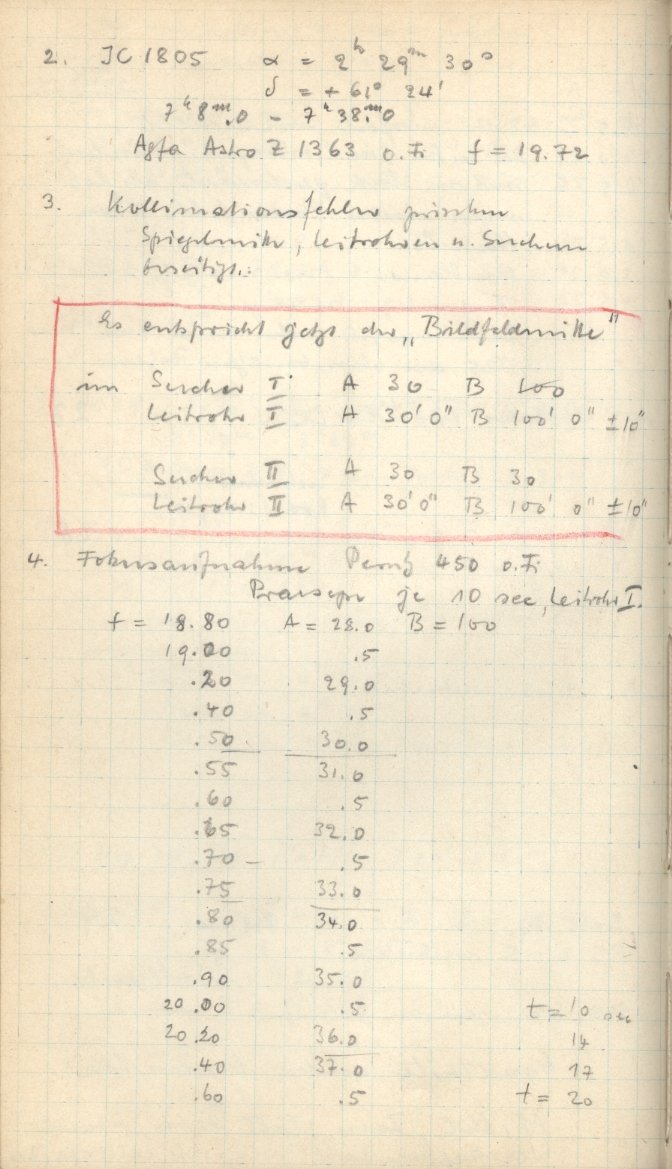 2. JC 1805 α = 2ʰ 29ᵐ 30ˢ
δ = + 61° 24'
7ʰ 8ᵐ.0 – 7ʰ 38ᵐ.0
Agfa Astro Z 1363 o. Fi f = 19.72
3. Kollimationsfehler zwischen
Spiegelmitte, Leitrohren u. Suchern
beseitigt.:
Es entspricht jetzt der „Bildfeldmitte"
im Sucher I A 30 B 100
Leitrohr I A 30' 0" B 100' 0" ±10"
Sucher II A 30 B 30
Leitrohr II A 30' 0" B 100' 0" ±10"
4. Fokusaufnahme Perutz 450 o. Fi
Praesepe je 10 sec, Leitrohr I.
f = 18.80 A = 28.0 B = 100
19.00 .5
.20 29.0
.40 .5
.50 30.0
.55 31.0
.60 .5
.65 32.0
.70 – .5
.75 33.0
.80 34.0
.85 .5
.90 35.0
20.00 .5 t = 10 sec
20.20 36.0 14
.40 37.0 17
.60 .5 t = 20